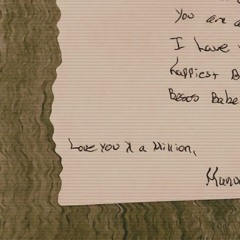 You are
I have
Happiest B
Besos Babe
Love you X a Million,